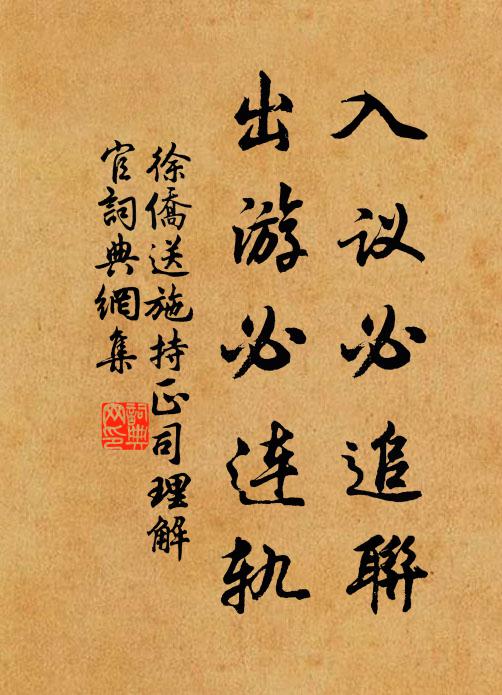 入议必追聯
出游必连轨
徐僑送施持正司理解
官詞典網集
詞典
网印